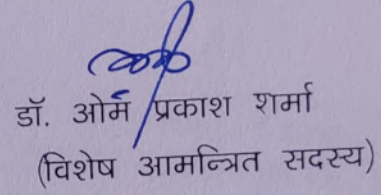 डॉ. ओम प्रकाश शर्मा
(विशेष आमन्त्रित सदस्य)